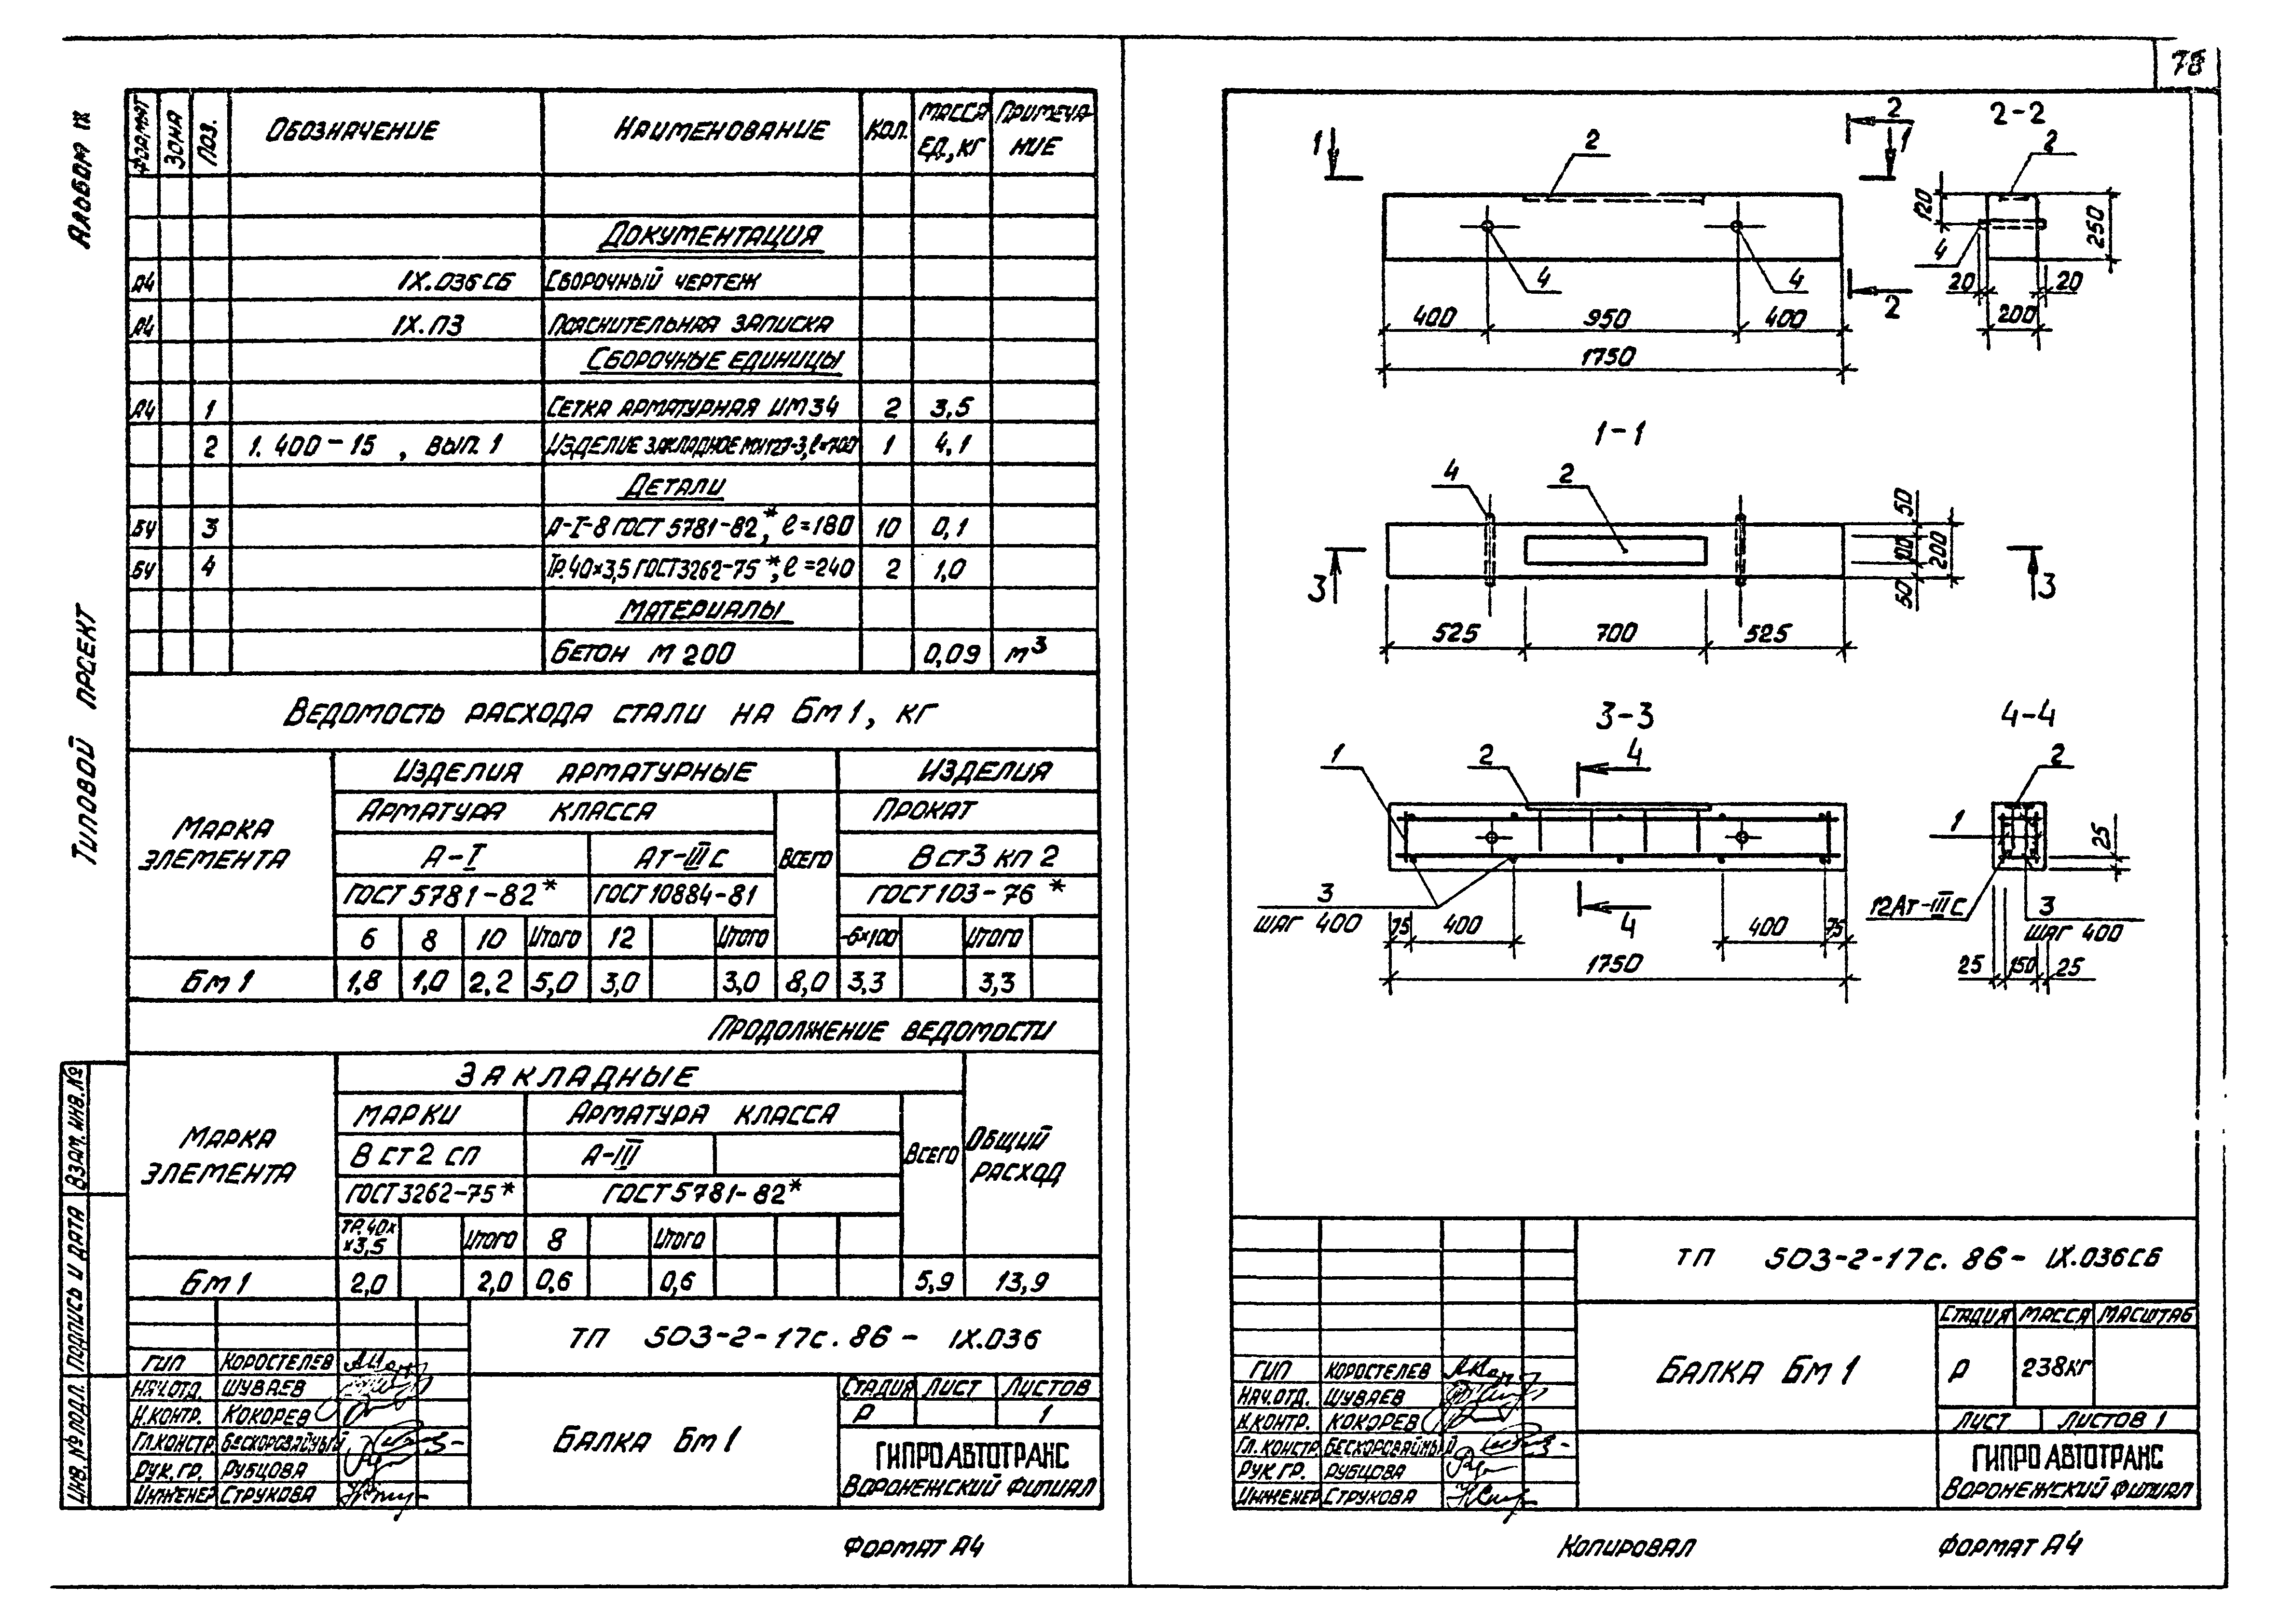 78
Альбом IX
Типовой проект
Взам. инв. №
Подпись и дата
Инв. № подл.
Формат Зона Поз. Обозначение Наименование Кол. Масса ед., кг Примечание
Документация
А4 IX.036СБ Сборочный чертеж
А4 IX.ПЗ Пояснительная записка
Сборочные единицы
А4 1 Сетка арматурная ИМ34 2 3,5
2 1.400-15, вып. 1 Изделие закладное МН127-3, ℓ=700 1 4,1
Детали
БЧ 3 А-I-8 ГОСТ 5781-82*, ℓ=180 10 0,1
БЧ 4 Тр. 40×3,5 ГОСТ 3262-75*, ℓ=240 2 1,0
Материалы
Бетон М 200 0,09 м³
Ведомость расхода стали на Бм 1, кг
Марка элемента
Изделия арматурные Изделия
Арматура класса Всего Прокат
А-I Ат-III С В ст3 кп 2
ГОСТ 5781-82* ГОСТ 10884-81 ГОСТ 103-76*
6 8 10 Итого 12 Итого -6×100 Итого
Бм 1 1,8 1,0 2,2 5,0 3,0 3,0 8,0 3,3 3,3
Продолжение ведомости
Марка элемента
Закладные Общий расход
марки Арматура класса Всего
В ст2 сп А-III
ГОСТ 3262-75* ГОСТ 5781-82*
Тр. 40× ×3,5 Итого 8 Итого
Бм 1 2,0 2,0 0,6 0,6 5,9 13,9
ТП 503-2-17с.86- IX.036
ГИП Коростелев
Нач.отд. Шуваев
Н.контр. Кокорев
Гл.констр. Бескоровайный
Рук.гр. Рубцова
Инженер Струкова
Балка Бм 1
Стадия Лист Листов
Р 1
ГИПРОАВТОТРАНС
Воронежский филиал
Формат А4
1 2 2 1
4 4 2
400 950 400
1750
2-2
2
120 250
4
20 20
200
1-1
4 2
3 3
50 100 50 200
525 700 525
3-3
1 2 4
3
шаг 400
4
75 400 400 75
1750
4-4
2
1
25
12Ат-III С 3
шаг 400
25 150 25
ТП 503-2-17с.86- IX.036СБ
ГИП Коростелев
Нач.отд. Шуваев
Н.контр. Кокорев
Гл.констр Бескоровайный
Рук.гр. Рубцова
Инженер Струкова
Балка Бм 1
Стадия Масса Масштаб
Р 238кг
Лист Листов 1
ГИПРОАВТОТРАНС
Воронежский филиал
Копировал Формат А4